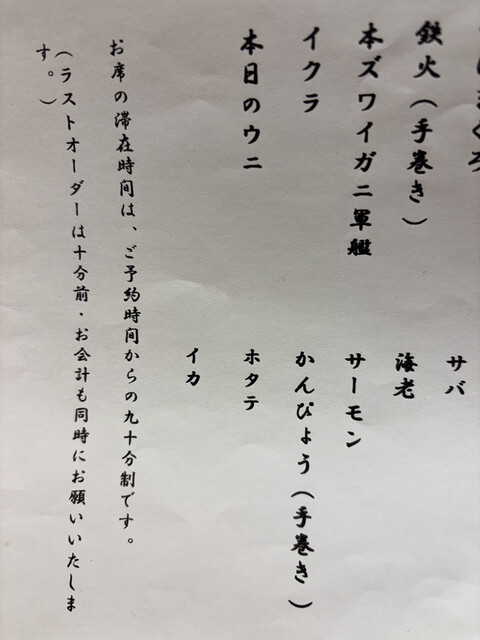 鉄火（手巻き）
本ズワイガニ軍艦
イクラ
本日のウニ
サバ
海老
サーモン
かんぴょう（手巻き）
ホタテ
イカ
お席の滞在時間は、ご予約時間からの九十分制です。
（ラストオーダーは十分前・お会計も同時にお願いいたしま
す。）